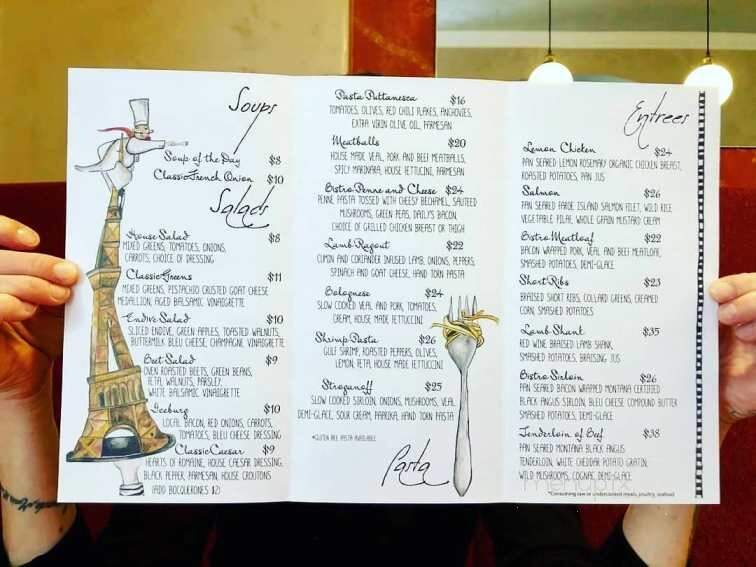 Soups
Soup of the Day $8
Classic French Onion $10
Salads
House Salad $8
MIXED GREENS, TOMATOES, ONIONS,
CARROTS, CHOICE OF DRESSING
Classic Greens $11
MIXED GREENS, PISTACHIO CRUSTED GOAT CHEESE
MEDALLION, AGED BALSAMIC VINAIGRETTE
Endive Salad $10
SLICED ENDIVE, GREEN APPLES, TOASTED WALNUTS,
BUTTERMILK BLEU CHEESE, CHAMPAGNE VINAIGRETTE
Beet Salad $9
OVEN ROASTED BEETS, GREEN BEANS,
FETA, WALNUTS, PARSLEY,
WHITE BALSAMIC VINAIGRETTE
Iceburg $10
LOCAL BACON, RED ONIONS, CARROTS,
TOMATOES, BLEU CHEESE DRESSING
Classic Caesar $9
HEARTS OF ROMAINE, HOUSE CAESAR DRESSING,
BLACK PEPPER, PARMESAN, HOUSE CROUTONS
(ADD BOCQUERONES $2)
Pasta Puttanesca $16
TOMATOES, OLIVES, RED CHILI FLAKES, ANCHOVIES,
EXTRA VIRIN OLIVE OIL, PARMESAN
Meatballs $20
HOUSE MADE VEAL, PORK AND BEEF MEATBALLS,
SPICY MARINARA, HOUSE FETTUCCINI, PARMESAN
Bistro Penne and Cheese $24
PENNE PASTA TOSSED WITH CHEESY BECHAMEL, SAUTEED
MUSHROOMS, GREEN PEAS, DAILY'S BACON,
CHOICE OF GRILLED CHICKEN BREAST OR THIGH
Lamb Ragout $22
CUMIN AND CORIANDER INFUSED LAMB, ONIONS, PEPPERS,
SPINACH AND GOAT CHEESE, HAND TORN PASTA
Bolognese $24
SLOW COOKED VEAL AND PORK, TOMATOES,
CREAM, HOUSE MADE FETTUCCINI
Shrimp Pasta $26
GULF SHRIMP, ROASTED PEPPERS, OLIVES,
LEMON, FETA, HOUSE MADE FETTUCCINI
Stroganoff $25
SLOW COOKED SIRLOIN, ONIONS, MUSHROOMS, VEAL
DEMI-GLACE, SOUR CREAM, PAPRIKA, HAND TORN PASTA
*GLUTEN FREE PASTA AVAILABLE
Pasta
Entrees
Lemon Chicken $24
PAN SEARED LEMON ROSEMARY ORGANIC CHICKEN BREAST,
ROASTED POTATOES, PAN JUS
Salmon $26
PAN SEARED FAROE ISLAND SALMON FILET, WILD RICE
VEGETABLE PILAF, WHOLE GRAIN MUSTARD CREAM
Bistro Meatloaf $22
BACON WRAPPED PORK, VEAL AND BEEF MEATLOAF,
SMASHED POTATOES, DEMI-GLACE
Short Ribs $23
BRAISED SHORT RIBS, COLLARD GREENS, CREAMED
CORN, SMASHED POTATOES
Lamb Shank $35
RED WINE BRAISED LAMB SHANK,
SMASHED POTATOES, BRAISING JUS
Bistro Sirloin $26
PAN SEARED BACON WRAPPED MONTANA CERTIFIED
BLACK ANGUS SIRLOIN, BLEU CHEESE COMPOUND BUTTER
SMASHED POTATOES, DEMI-GLACE
Tenderloin of Beef $38
PAN SEARED MONTANA BLACK ANGUS
TENDERLOIN, WHITE CHEDDAR POTATO GRATIN,
WILD MUSHROOMS, COGNAC, DEMI-GLACE
*Consuming raw or undercooked meats, poultry, seafood